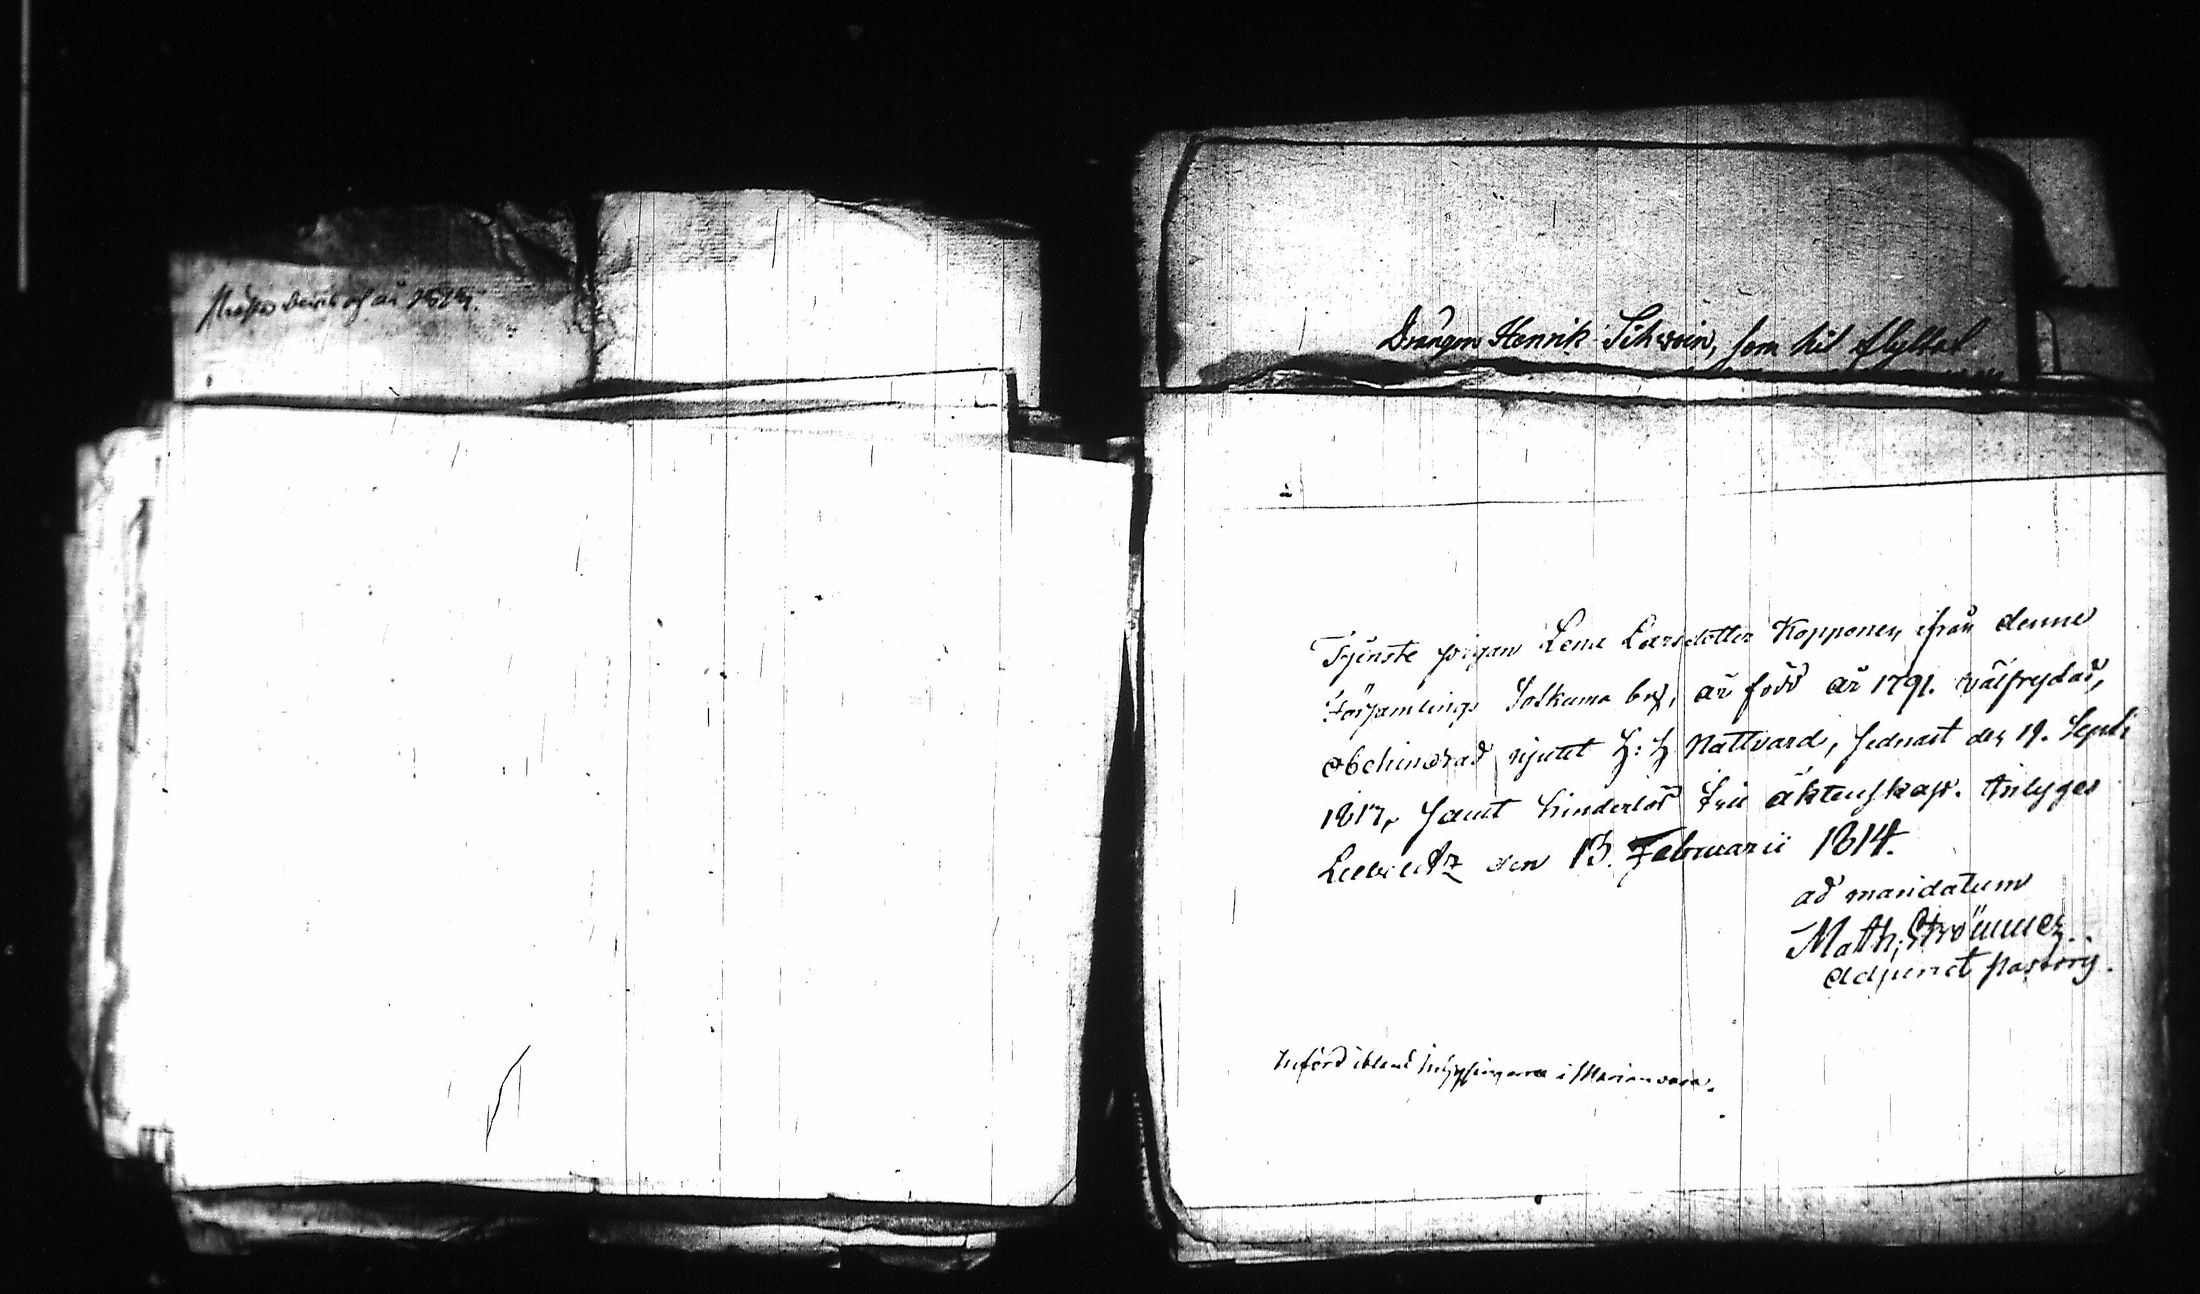 af år 1814.
Drängen Henrik Sihvoin, som hit flyttat
Tjenste pigan Lena Larsdotter Kopponen, ifrån denne
Församlings Solkuma by, är född år 1791. välfrydad,
obehindrad njutit H: H Nattvard, sednast den 19. Septb
1813, samt hinderlös till äktenskap. Attesteras
Liebelitz den 13. Februarii 1814.
ad mandatum
Math: Strömmer.
Adjunct Pastory.
Införd ibland Inhysingarna i Marianvara.